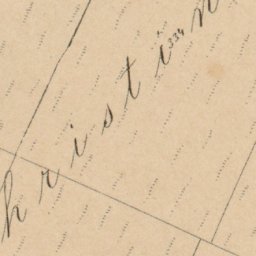 hristin
334